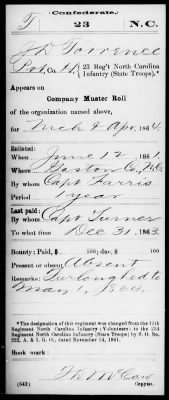 (Confederate.)
T 23 N.C.
J D Torrence
Pvt, Co. H, 23 Reg't North Carolina
Infantry (State Troops).*
Appears on
Company Muster Roll
of the organization named above,
for Mch & Apr, 1864.
Enlisted:
When June 12, 1861.
Where Gaston Co, N.C.
By whom Capt Farris
Period 1 year
Last paid:
By whom Capt Turner
To what time Dec 31, 1863.
Bounty: Paid, $ 100; due, $ 100
Present or absent Absent
Furloughed to
May 1, 1864
*The designation of this regiment was changed from the 13th
Regiment North Carolina Infantry (Volunteers) to the 23d
Regiment North Carolina Infantry (State Troops) by S. O. No.
222, A. & I. G. O., dated November 14, 1861.
Book mark:
(642) Copyist.